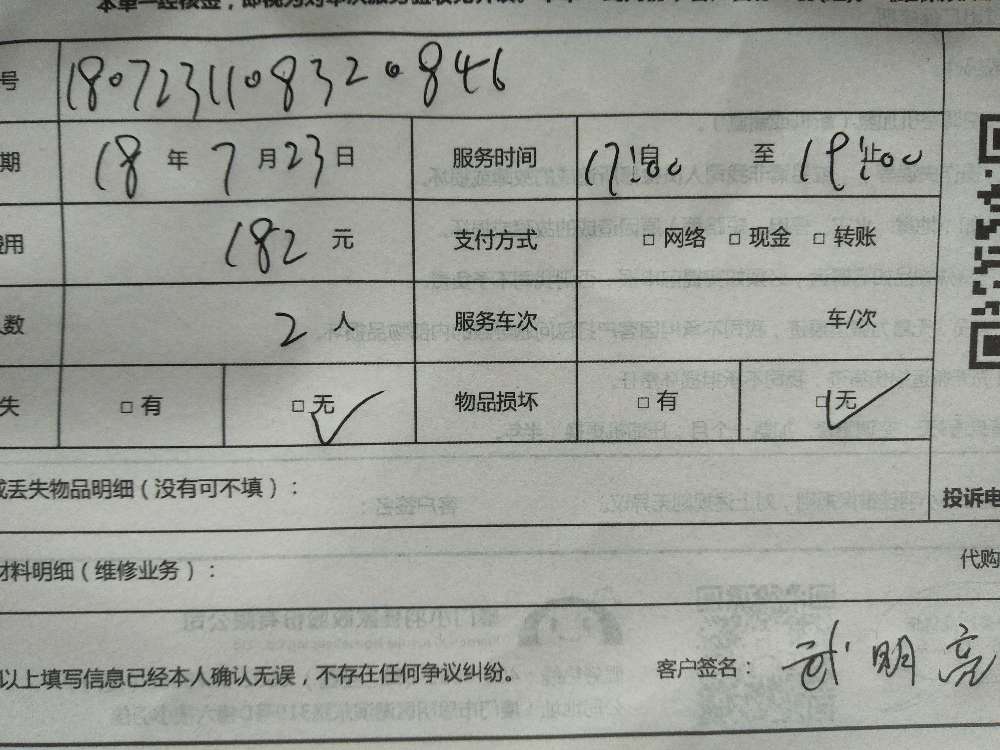 号 1807231108320846
期 18 年 7 月 23 日 服务时间 17:00 自 至 19:00 止
费用 182 元 支付方式 □ 网络 □ 现金 □ 转账
人数 2 人 服务车次 车/次
失 □ 有 □ 无 ✓ 物品损坏 □ 有 □ 无 ✓
或丢失物品明细（没有可不填）：
投诉电
材料明细（维修业务）：
代购
以上填写信息已经本人确认无误，不存在任何争议纠纷。 客户签名： 武明亮